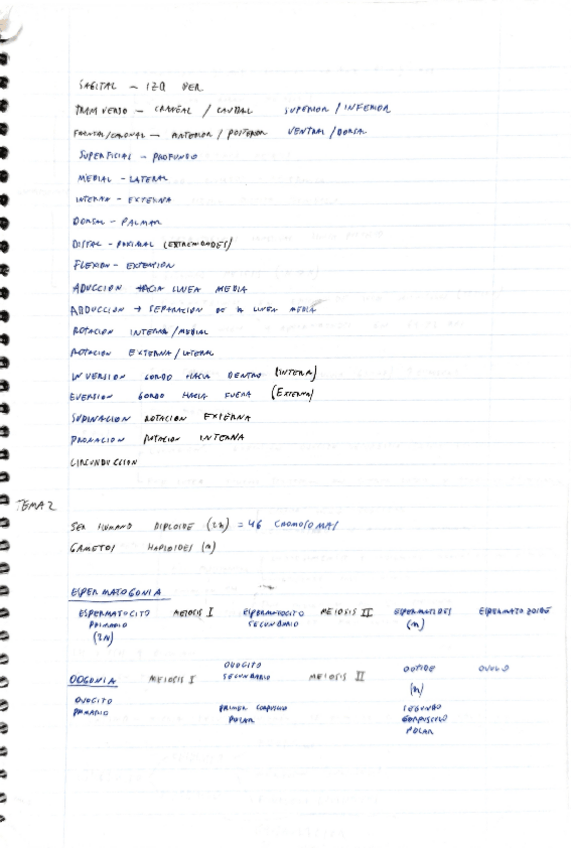 SAGITAL - IZQ DER
TRANSVERSO - CRANEAL / CAUDAL SUPERIOR / INFERIOR
FRONTAL/CORONAL - ANTERIOR / POSTERIOR VENTRAL / DORSAL
SUPERFICIAL - PROFUNDO
MEDIAL - LATERAL
INTERNA - EXTERNA
DORSAL - PALMAR
DISTAL - PROXIMAL (EXTREMIDADES)
FLEXION - EXTENSION
ADUCCION HACIA LINEA MEDIA
ABDUCCION → SEPARACION DE LA LINEA MEDIA
ROTACION INTERNA / MEDIAL
ROTACION EXTERNA / LATERAL
INVERSION BORDO HACIA DENTRO (INTERNA)
EVERSION BORDO HACIA FUERA (EXTERNA)
SUPINACION ROTACION EXTERNA
PRONACION ROTACION INTERNA
CIRCUNDUCCION
TEMA 2
SER HUMANO DIPLOIDE (2N) = 46 CROMOSOMAS
GAMETOS HAPLOIDES (N)
ESPERMATOGONIA
ESPERMATOCITO PRIMARIO (2N) MEIOSIS I ESPERMATOCITO SECUNDARIO MEIOSIS II ESPERMATIDES (N) ESPERMATOZOIDE
OOGONIA MEIOSIS I OVOCITO SECUNDARIO MEIOSIS II OOTIDE (N) OVULO
OVOCITO PRIMARIO PRIMER CORPUSCULO POLAR SEGUNDO CORPUSCULO POLAR